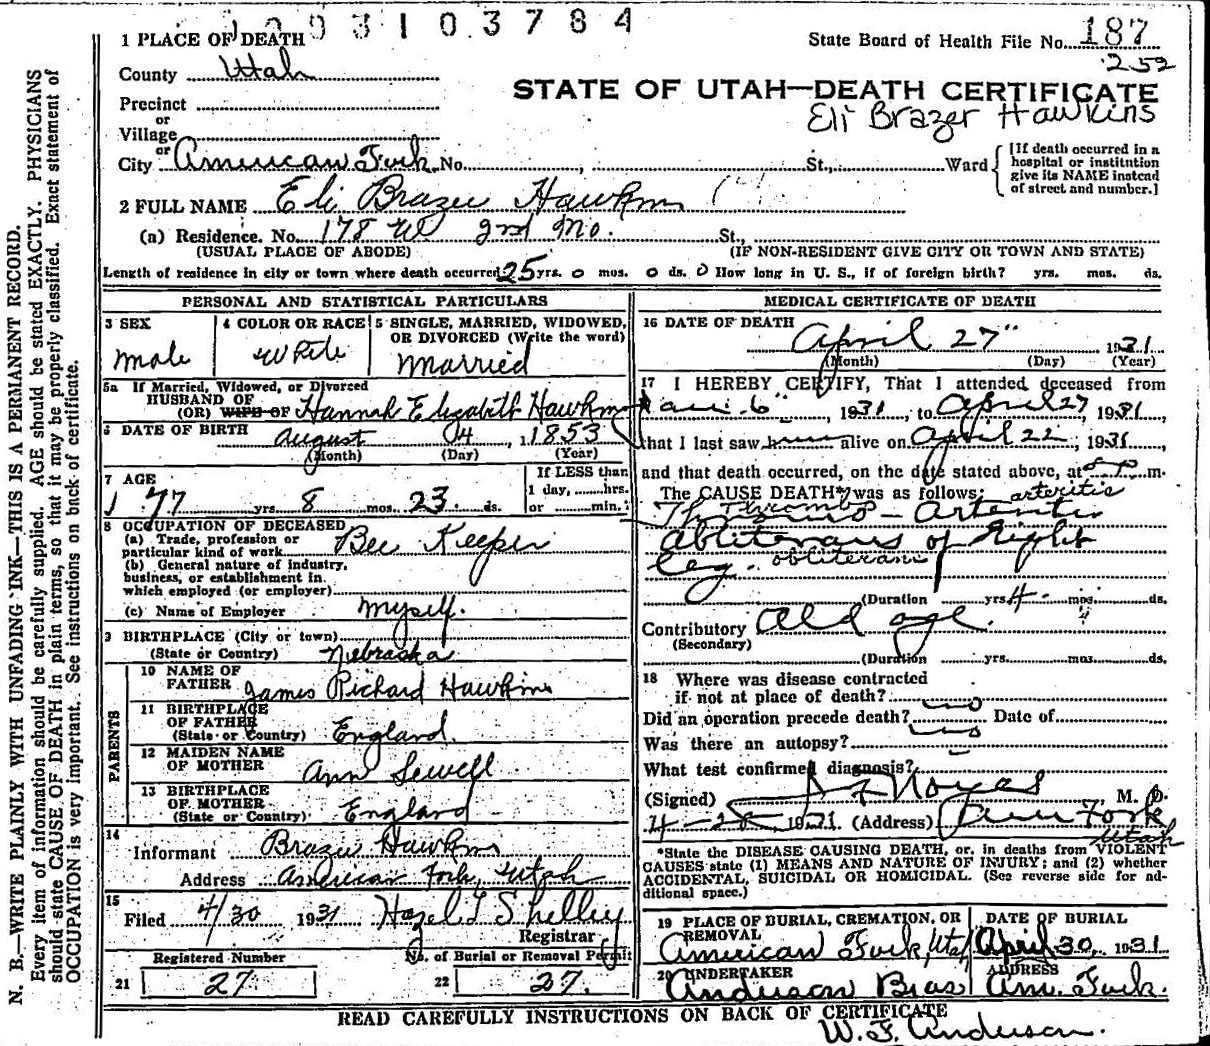 9 3 1 0 3 7 8 4
1 PLACE OF DEATH
State Board of Health File No. 187
252
County Utah
STATE OF UTAH—DEATH CERTIFICATE
Precinct
Eli Brazer Hawkins
or
Village
or
City American Fork No. , St., Ward
[If death occurred in a hospital or institution give its NAME instead of street and number.]
2 FULL NAME Eli Brazee Hawkins
(a) Residence. No. 178 W 2nd No. St.,
(USUAL PLACE OF ABODE) (IF NON-RESIDENT GIVE CITY OR TOWN AND STATE)
Length of residence in city or town where death occurred 25 yrs. 0 mos. 0 ds. How long in U. S., if of foreign birth? yrs. mos. ds.
PERSONAL AND STATISTICAL PARTICULARS
3 SEX
male
4 COLOR OR RACE
White
5 SINGLE, MARRIED, WIDOWED, OR DIVORCED (Write the word)
Married
5a If Married, Widowed, or Divorced
HUSBAND OF
(OR) WIFE OF Hannah Elizabeth Hawkins
6 DATE OF BIRTH
August 4, 1853
(Month) (Day) (Year)
7 AGE
77 yrs. 8 mos. 23 ds.
If LESS than
1 day, hrs.
or min.
8 OCCUPATION OF DECEASED
(a) Trade, profession or
particular kind of work Bee Keeper
(b) General nature of industry,
business, or establishment in
which employed (or employer)
(c) Name of Employer myself.
9 BIRTHPLACE (City or town)
(State or Country) Nebraska
PARENTS
10 NAME OF
FATHER James Richard Hawkins
11 BIRTHPLACE
OF FATHER
(State or Country) England.
12 MAIDEN NAME
OF MOTHER Ann Sewell
13 BIRTHPLACE
OF MOTHER
(State or Country) England
14
Informant Brazee Hawkins
Address American Fork, Utah
15
Filed 4/30 1931 Hazel L Shelley
Registrar
Registered Number No. of Burial or Removal Permit
21 27 22 27.
MEDICAL CERTIFICATE OF DEATH
16 DATE OF DEATH
April 27" 1931
(Month) (Day) (Year)
17 I HEREBY CERTIFY, That I attended deceased from
6" , 1931, to April 27, 1931,
that I last saw alive on April 22, 1931
and that death occurred, on the date stated above, at m.
The CAUSE DEATH* was as follows: arteritis
Thrombo
Thrombo - Arteritis
Obliterans of Right
leg. obliterans
(Duration yrs. 4 mos. ds.
Contributory Old age.
(Secondary)
(Duration yrs. mos. ds.
18 Where was disease contracted
if not at place of death?
Did an operation precede death? no Date of
Was there an autopsy? no
What test confirmed diagnosis?
(Signed) Noyes M. D.
4-28 1931 (Address) Am Fork
Utah
*State the DISEASE CAUSING DEATH, or, in deaths from VIOLENT
CAUSES state (1) MEANS AND NATURE OF INJURY; and (2) whether
ACCIDENTAL, SUICIDAL OR HOMICIDAL. (See reverse side for ad-
ditional space.)
19 PLACE OF BURIAL, CREMATION, OR
REMOVAL
American Fork, Utah
DATE OF BURIAL
April 30, 1931
20 UNDERTAKER
Anderson Bros
ADDRESS
Am. Fork.
READ CAREFULLY INSTRUCTIONS ON BACK OF CERTIFICATE
W. F. Anderson.
N. B.—WRITE PLAINLY WITH UNFADING INK—THIS IS A PERMANENT RECORD.
Every item of information should be carefully supplied. AGE should be stated EXACTLY. PHYSICIANS
should state CAUSE OF DEATH in plain terms, so that it may be properly classified. Exact statement of
OCCUPATION is very important. See instructions on back of certificate.